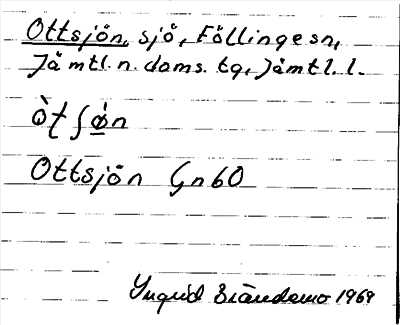 Ottsjön, sjö, Föllinge sn,
Jämtl. n. doms. tg, Jämtl. l.
òtʃø̀n
Ottsjön Gn 60
Ingrid Brändemo 1969